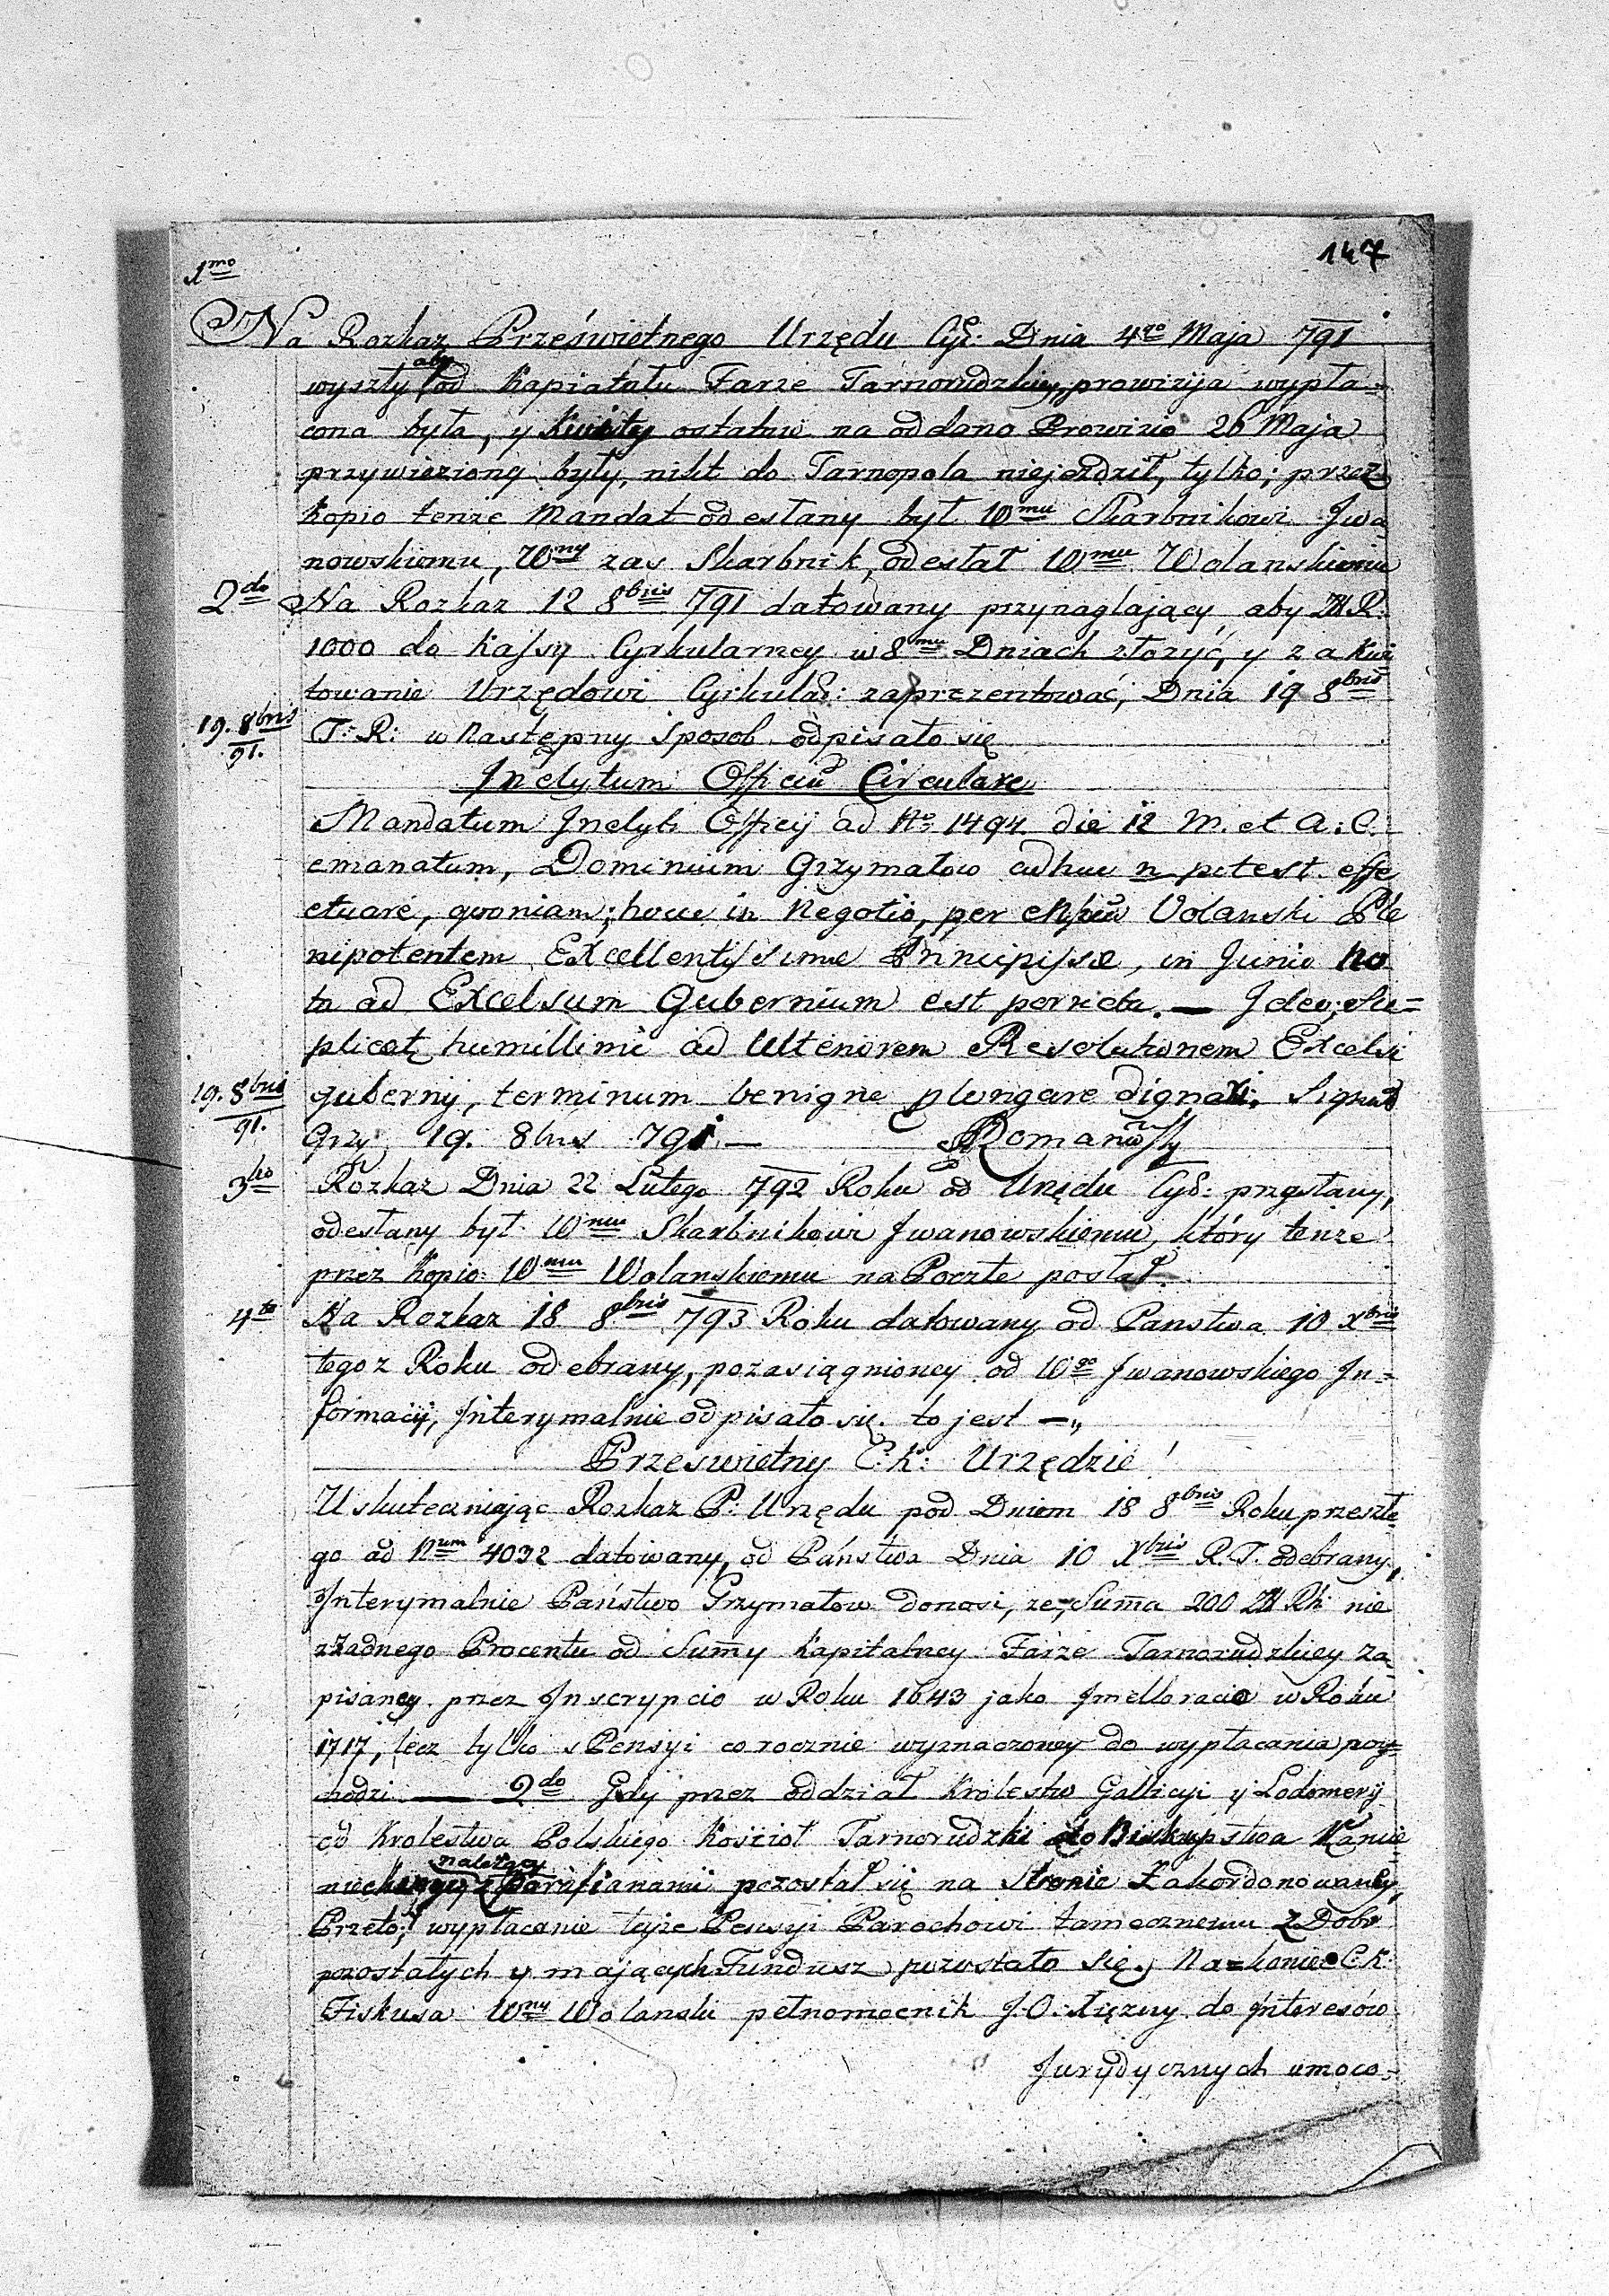 147
1mo
Na Rozkaz Prześwietnego Urzędu Cyr: Dnia 4go Maja 791
wyszły aby od Kapiatału Farze Tarnorudzkiey, prowizyja wypła-
cona była, y Kwity ostatnie na oddano Prowizio 26 Maja
przywieziony były, nikt do Tarnopola niejezdził, tylko; przez
Kopio tenże Mandat odesłany był Wmu Skarbnikowi Iwa
nowskiemu, Wny zas Skarbnik, odesłał Wmu Wolanskiemu
2do Na Rozkaz 12 8bris 791 datowany przynaglający, aby ZłR.
1000 do Kassy Cyrkularney w 8mu Dniach złożyć, y zakwi
towanie Urzędowi Cyrkular: zaprezentować, Dnia 19 8bris
19. 8bris 91. T: R: w Następny Sposob odpisało się
Inclytum Officiũ Circulare
Mandatum Inclyti Officij ad No 1494 die 12 M. et A: C.
emanatum, Dominium Grzymałow adhuc n potest effe
ctuare, quoniam; hocce in Negotio, per Volanski Ple
nipotentem Excellentissime Principisse, in Junio No
ta ad Excelsum Gubernium est porrecta. — Ideo; Su=
plicat humillime ad Ulteriorem Resolutionem Excelsi
19. 8bris 91. guberny, terminum benigne plongare dignari. Signat
Grzy 19. 8bris 791 — Romanowsky
3tio Rozkaz Dnia 22 Lutego 792 Roku od Urzędu Cyr: przysłany,
odesłany był Wmu Skarbnikowi Iwanowskiemu, który tenże
przez Kopio Wmu Wolanskiemu na Poczte posłał.
4to Na Rozkaz 18 8bris 793 Roku datowany od Panstwa 10 Xbris
tegoz Roku odebrany, pozasiągnioney od Wgo Iwanowskiego In-
formacij, Interymalnie odpisało się to jest —„
Prześwietny C: K: Urzędzie!
Uskuteczniając Rozkaz P: Urzędu pod Dniem 18 8bris Roku przeszłe
go ad Num 4032 datowany, od Państwa Dnia 10 Xbris R. T. odebrany,
Interymalnie Państwo Grzymałow donosi, że; Summa 200 Zł Rh nie
zżadnego Procentu od Summy Kapitalney Farze Tarnorudzkiey Za
pisaney przez Inscrypcio w Roku 1643 jako Imelloracio w Roku
1717, lecz tylko s Pensyi corocznie wyznaczoney do wypłacania poy=
hodzi — 2do Gdy przez oddział Krolestw Gallicyi y Lodomerij
od Krolestwa Polskiego Kościoł Tarnorudzki do Biskupstwa Kamie
nieckiego należący z Parafianami pozostał się na Stronie Zakordonowaney,
Przeto; wypłacanie tejże Pensyi Parochowi tamecznemu z Dobr
pozostałych y mających Fundusz pozostało się. Na-koniec C: K:
Fiskusa Wny Wolanski pełnomocnik J: O: Xiężny do Interesów
Jurydycznych umoco-